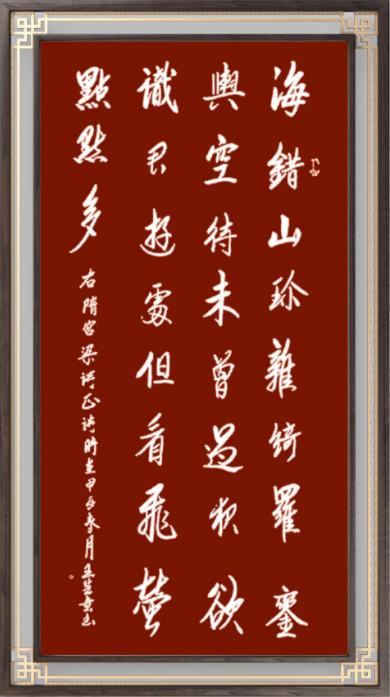 海錯山珍雜綺羅鑾
輿空待未曾過欲
識君遊處但看飛螢
點點多
右隋宮梁詩正詩時在甲辰春月書